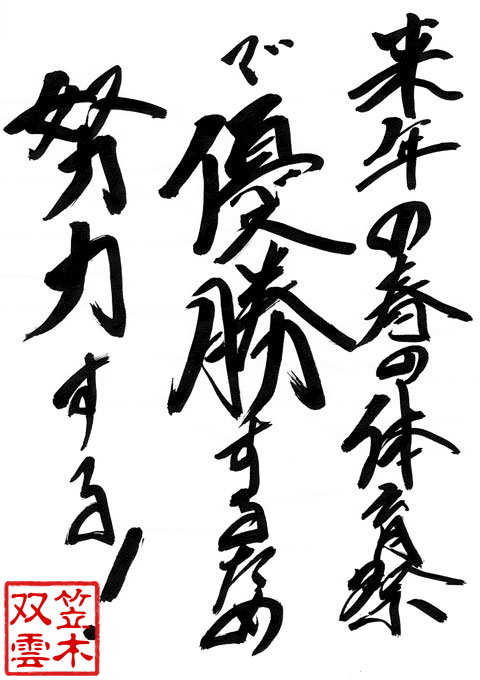 来年の春の体育祭
で優勝するため
努力する!
笠木
双雲